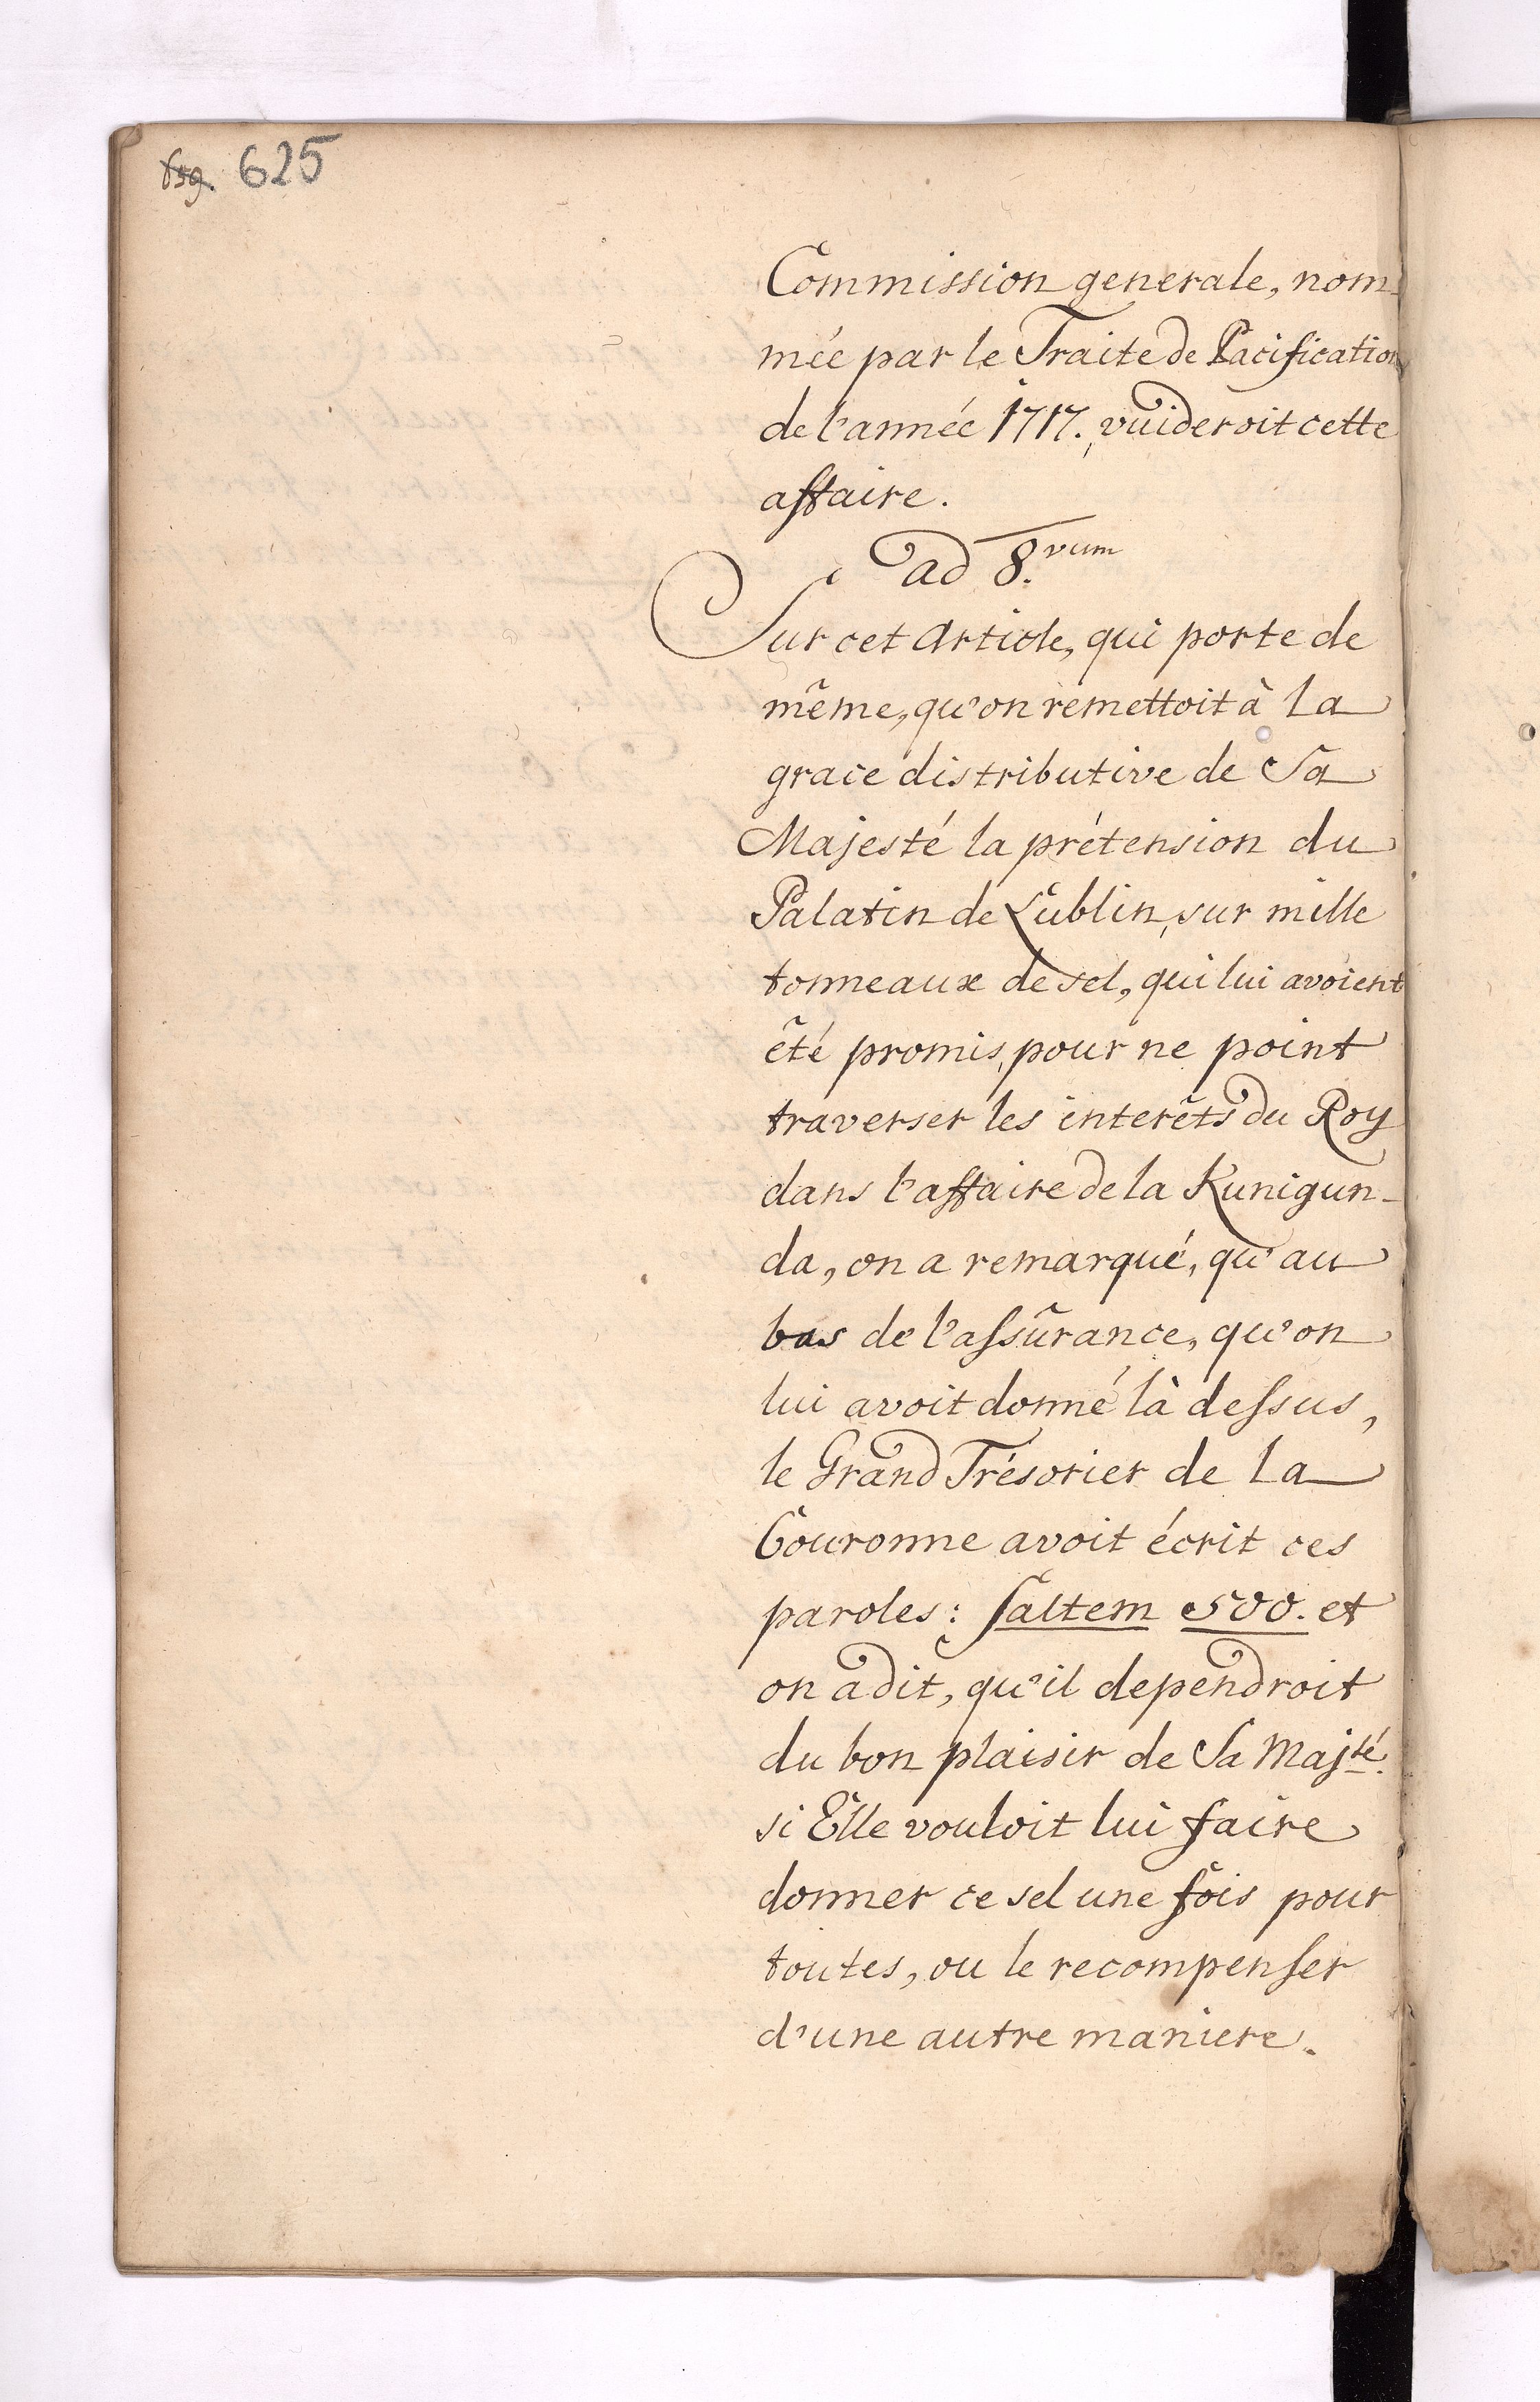 625
Commission generale, nom-
mée par le Traite de Pacification
de l'année 1717. vuideroit cette
affaire.
ad 8.vum
Sur cet Article, qui porte de
même, qu'on remettoit à la
grace distributive de Sa
Majesté la prétension du
Palatin de Lublin, sur mille
tonneaux de sel, qui lui avoient
été promis, pour ne point
traverser les interêts du Roy
dans l'affaire de la Kunigun-
da, on a remarqué, qu'au
bas de l'assûrance, qu'on
lui avoit donné là dessus,
le Grand Trésorier de la
Couronne avoit écrit ces
paroles: saltem 500. et
on a dit, qu'il dependroit
du bon plaisir de Sa Majté.
si Elle vouloit lui faire
donner ce sel une fois pour
toutes, ou le recompenser
d'une autre maniere.